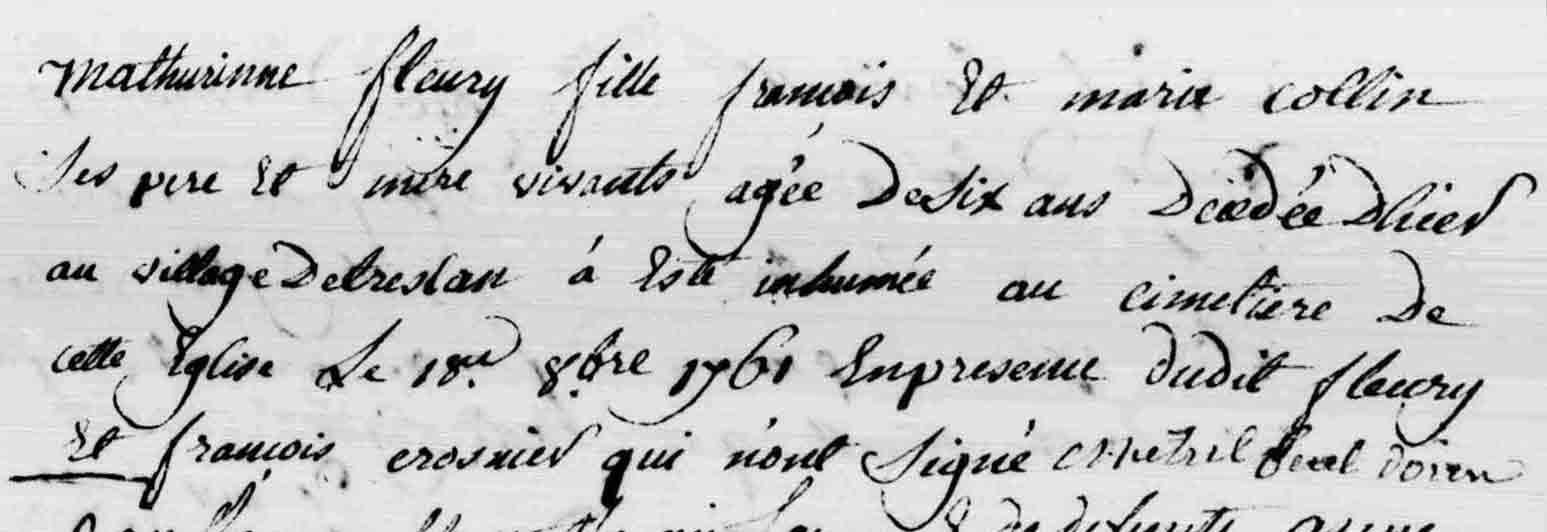 Mathurinne fleury fille françois Et marie collin
Ses pere Et mere vivants agée De Six ans Décédée Dhier
au village De treslan á Esté inhumée au cimetiere De
cette Eglise Le 18.e 8.bre 1761 En presence dudit fleury
Et françois crosnier qui n'ont Signé
De defunte